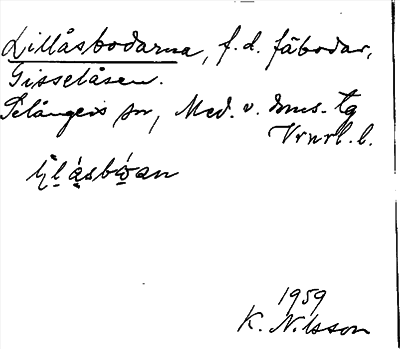 Lillåsbodarna, f.d. fäbodar,
Gisselåsen.
Selångers sn, Med. v. dms. tg
Vrnrl. l.
1959
K. Nilsson